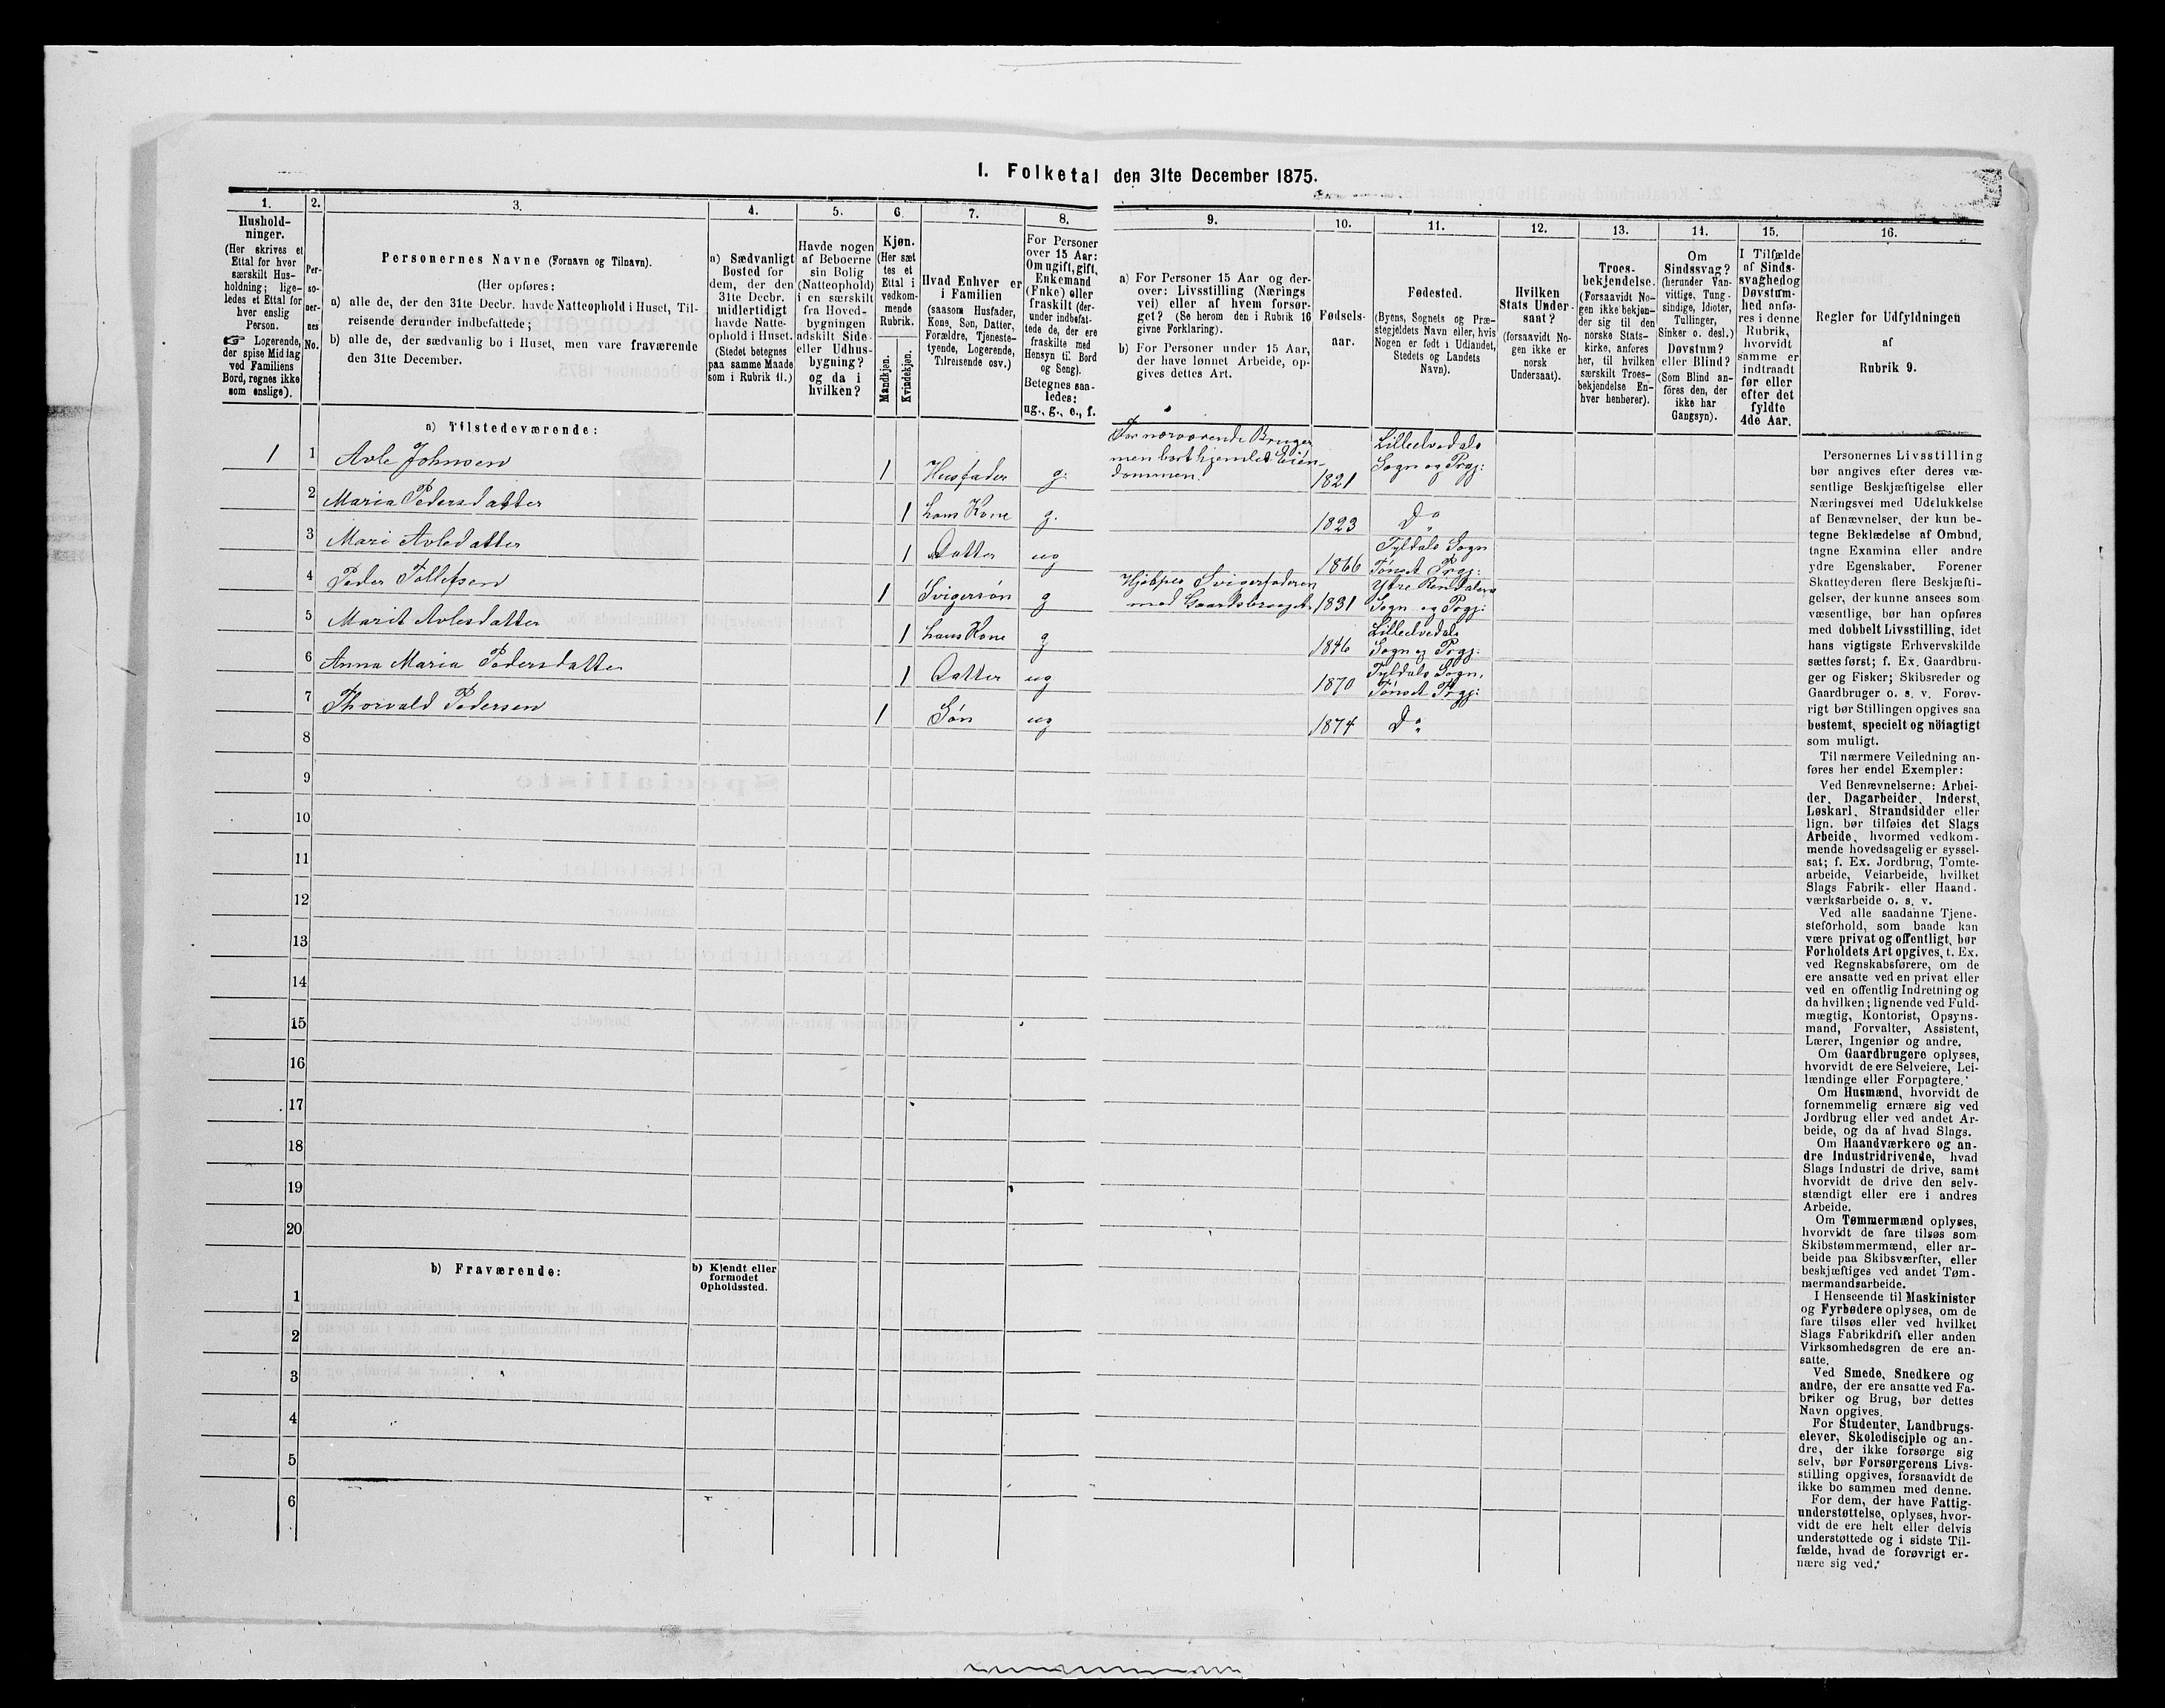 I. Folketal den 31te December 1875.
1.
2.
3.
4.
5.
6.
7.
8.
9.
10.
11.
12.
13.
14.
15.
16.
Hushold-
ninger.
(Her skrives et
Ettal for hver
særskilt Hus-
holdning; lige-
ledes et Ettal for
hver enslig
Person.
☞ Logerende,
der spise Middag
ved Familiens
Bord, regnes ikke
som enslige).
Per-
so-
ner-
nes
No.
Personernes Navne (Fornavn og Tilnavn).
(Her opføres:
a) alle de, der den 31te Decbr. havde Natteophold i Huset, Til-
reisende derunder indbefattede;
b) alle de, der sædvanlig bo i Huset, men vare fraværende
den 31te December.
a) Sædvanligt
Bosted for
dem, der den
31te Decbr.
midlertidigt
havde Natte-
ophold i Huset.
(Stedet betegnes
paa samme Maade
som i Rubrik 11.)
Havde nogen
af Beboerne
sin Bolig
(Natteophold)
i en særskilt
fra Hoved-
bygningen
adskilt Side-
eller Udhus-
bygning?
og da i
hvilken?
Kjøn.
(Her sæt
tes et
Ettal i
vedkom-
mende
Rubrik.
Mandkjøn.
Kvindekjøn.
Hvad Enhver er
i Familien
(saasom Husfader,
Kone, Søn, Datter,
Forældre, Tjeneste-
tyende, Logerende,
Tilreisende osv.)
For Personer
over 15 Aar:
Om ugift, gift,
Enkemand
(Enke) eller
fraskilt (der-
under indbefat-
tede de, der ere
fraskilte med
Hensyn til Bord
og Seng).
Betegnes saa-
ledes:
ug., g., e., f.
a) For Personer 15 Aar og der-
over: Livsstilling (Nærings
vei) eller af hvem forsør-
get? (Se herom den i Rubrik 16
givne Forklaring).
b) For Personer under 15 Aar,
der have lønnet Arbeide, op-
gives dettes Art.
Fødsels-
aar.
Fødested.
(Byens, Sognets og Præ-
stegjeldets Navn eller, hvis
Nogen er født i Udlandet,
Stedets og Landets
Navn).
Hvilken
Stats Under-
saat?
(forsaavidt No-
gen ikke er
norsk
Undersaat).
Troes-
bekjendelse.
(Forsaavidt No-
gen ikke bekjen-
der sig til den
norske Stats-
kirke, anføres
her, til hvilken
særskilt Troes-
bekjendelse En-
hver henhører).
Om
Sindssvag?
(herunder Van-
vittige, Tung-
sindige, Idioter,
Tullinger,
Sinker o. desl.)
Døvstum?
eller Blind?
(Som Blind an-
føres den, der
ikke har
Gangsyn).
I Tilfælde
af Sinds-
svaghed og
Døvstum-
hed anfø-
res i denne
Rubrik,
hvorvidt
samme er
indtraadt
før eller
efter det
fyldte
4de Aar.
Regler for Udfyldningen
af
Rubrik 9.
a) Tilstedeværende:
1 1 Avle Johnsen 1 Husfader g. For nærværende Bruger men borthjemlet Eien- dommen. 1821 Lilleelvedals Sogn og Prgj:
2 Maria Pedersdatter 1 hans Kone g. 1823 Do
3 Mari Avlesdatter 1 Datter ug 1866 Tyldals Sogn Tønset Prgj:
4 Peder Tollefsen 1 Svigersøn g Hjælper Svigerfaderen med Gaardsbruget 1831 Ytre Rendalens Sogn og Prgj:
5 Marit Avlesdatter 1 hans Kone g 1846 Lilleelvedals Sogn og Prgj:
6 Anna Maria Pedersdatter 1 Datter ug 1870 Tyldals Sogn, Tønset Prgj:
7 Thorvald Pedersen 1 Søn ug 1874 Do
8
9
10
11
12
13
14
15
16
17
18
19
20
b) Fraværende:
b) Kjendt eller
formodet
Opholdssted.
1
2
3
4
5
6
Personernes Livsstilling
bør angives efter deres væ-
sentlige Beskjæftigelse eller
Næringsvei med Udelukkelse
af Benævnelser, der kun be-
tegne Beklædelse af Ombud,
tagne Examina eller andre
ydre Egenskaber. Forener
Skatteyderen flere Beskjæfti-
gelser, der kunne ansees som
væsentlige, bør han opføres
med dobbelt Livsstilling, idet
hans vigtigste Erhvervskilde
sættes først; f. Ex. Gaardbru-
ger og Fisker; Skibsreder og
Gaardbruger o. s. v. Forøv-
rigt bør Stillingen opgives saa
bestemt, specielt og nöiagtigt
som muligt.
Til nærmere Veiledning an-
føres her endel Exempler:
Ved Benævnelserne: Arbei-
der, Dagarbeider, Inderst,
Løskarl, Strandsidder eller
lign. bør tilføies det Slags
Arbeide, hvormed vedkom-
mende hovedsagelig er syssel-
sat; f. Ex. Jordbrug, Tomte-
arbeide, Veiarbeide, hvilket
Slags Fabrik- eller Haand-
værksarbeide o. s. v.
Ved alle saadanne Tjene-
steforhold, som baade kan
være privat og offentligt, bør
Forholdets Art opgives, f. Ex.
ved Regnskabsførere, om de
ere ansatte ved en privat eller
ved en offentlig Indretning og
da hvilken; lignende ved Fuld-
mægtig, Kontorist, Opsyns-
mand, Forvalter, Assistent,
Lærer, Ingeniør og andre.
Om Gaardbrugere oplyses,
hvorvidt de ere Selveiere, Lei-
lændinge eller Forpagtere.
Om Husmænd, hvorvidt de
fornemmelig ernære sig ved
Jordbrug eller ved andet Ar-
beide, og da af hvad Slags.
Om Haandværkere og an-
dre Industridrivende, hvad
Slags Industri de drive, samt
hvorvidt de drive den selv-
stændigt eller ere i andres
Arbeide.
Om Tømmermænd oplyses,
hvorvidt de fare tilsøs som
Skibstømmermænd, eller ar-
beide paa Skibsværfter, eller
beskjæftiges ved andet Tøm-
mermandsarbeide.
I Henseende til Maskinister
og Fyrbødere oplyses, om de
fare tilsøs eller ved hvilket
Slags Fabrikdrift eller anden
Virksomhedsgren de ere an-
satte.
Ved Smede, Snedkere og
andre, der ere ansatte ved Fa-
briker og Brug, bør dettes
Navn opgives.
For Studenter, Landbrugs-
elever, Skoledisciple og an-
dre, der ikke forsørge sig
selv, bør Forsørgerens Livs-
stilling opgives, forsaavidt de
ikke bo sammen med denne.
For dem, der have Fattig-
understøttelse, oplyses, hvor-
vidt de ere helt eller delvis
understøttede og i sidste Til-
fælde, hvad de forøvrigt er-
nære sig ved.